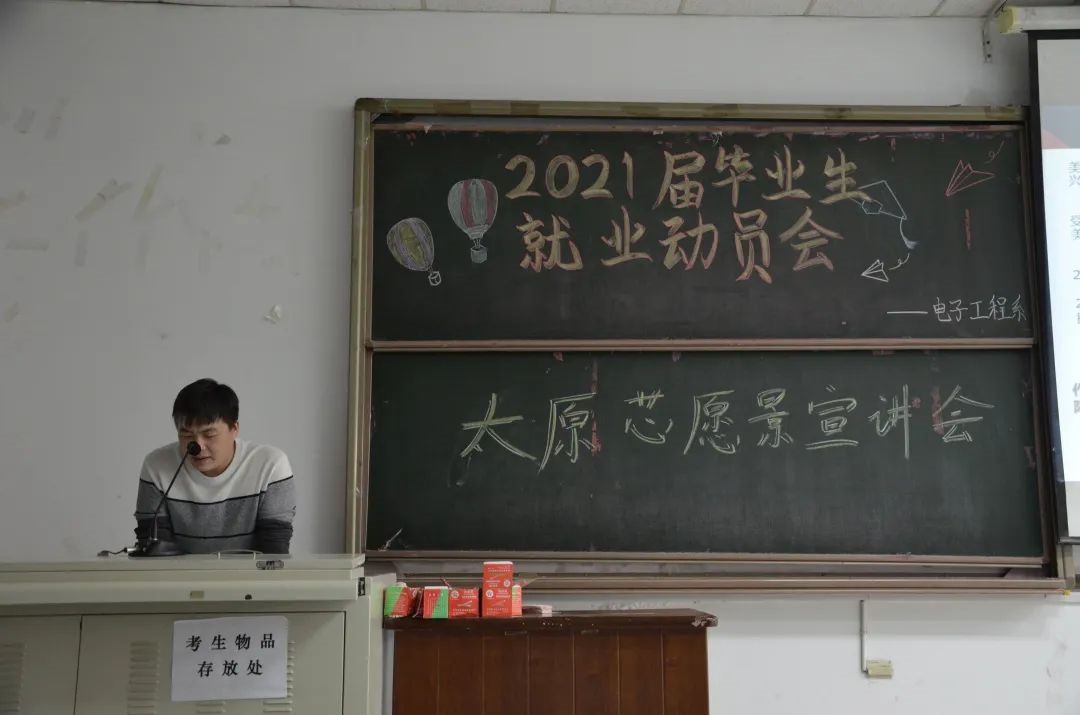 2021届毕业生
就业动员会
——电子工程系
太原芯愿景宣讲会
考生物品
存放处